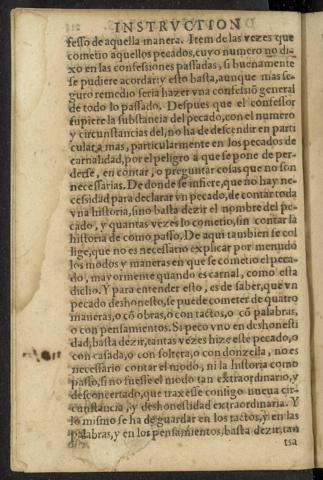 INSTRVCTION
fesso de aquella manera. Item de las vezes que
cometio aquellos pecados, cuyo numero no di-
xo en las confessiones passadas, si buenamente
se pudiere acordar: y esto basta, aunque mas se-
guro remedio seria hazer vna confessiō general
de todo lo passado. Despues que el confessor
supiere la substancia del pecado, con el numero
y circunstancias del, no ha de descendir en parti
cular a mas, particularmente en los pecados de
carnalidad, por el peligro a que se pone de per-
derse, en contar, o preguntar cosas que no son
necessarias. De donde se infiere, que no hay ne-
cessidad para declarar vn pecado, de contar toda
vna historia, sino basta dezir el nombre del pe-
cado, y quantas vezes lo cometio, sin contar la
historia de como passo. De aqui tambien se col
lige, que no es necessario explicar por menudo
los modos y maneras en que se cometio el peca-
do, mayormente quando es carnal, como esta
dicho. Y para entender esto, es de saber, que vn
pecado deshonesto, se puede cometer de quatro
maneras, o cō obras, o con tactos, o cō palabras,
o con pensamientos. Si peco vno en deshonesti
dad, basta dezir, tantas vezes hize este pecado, o
con casada, o con soltera, o con donzella, no es
necessario contar el modo, ni la historia como
passo, si no fuesse el modo tan extraordinario, y
desconcertado, que traxesse contigo nueua cir-
cunstancia, y deshonestidad extraordinaria. Y
lo mismo se ha de guardar en los tactos, y en las
palabras, y en los pensamientos, basta dezir, tan
tsa